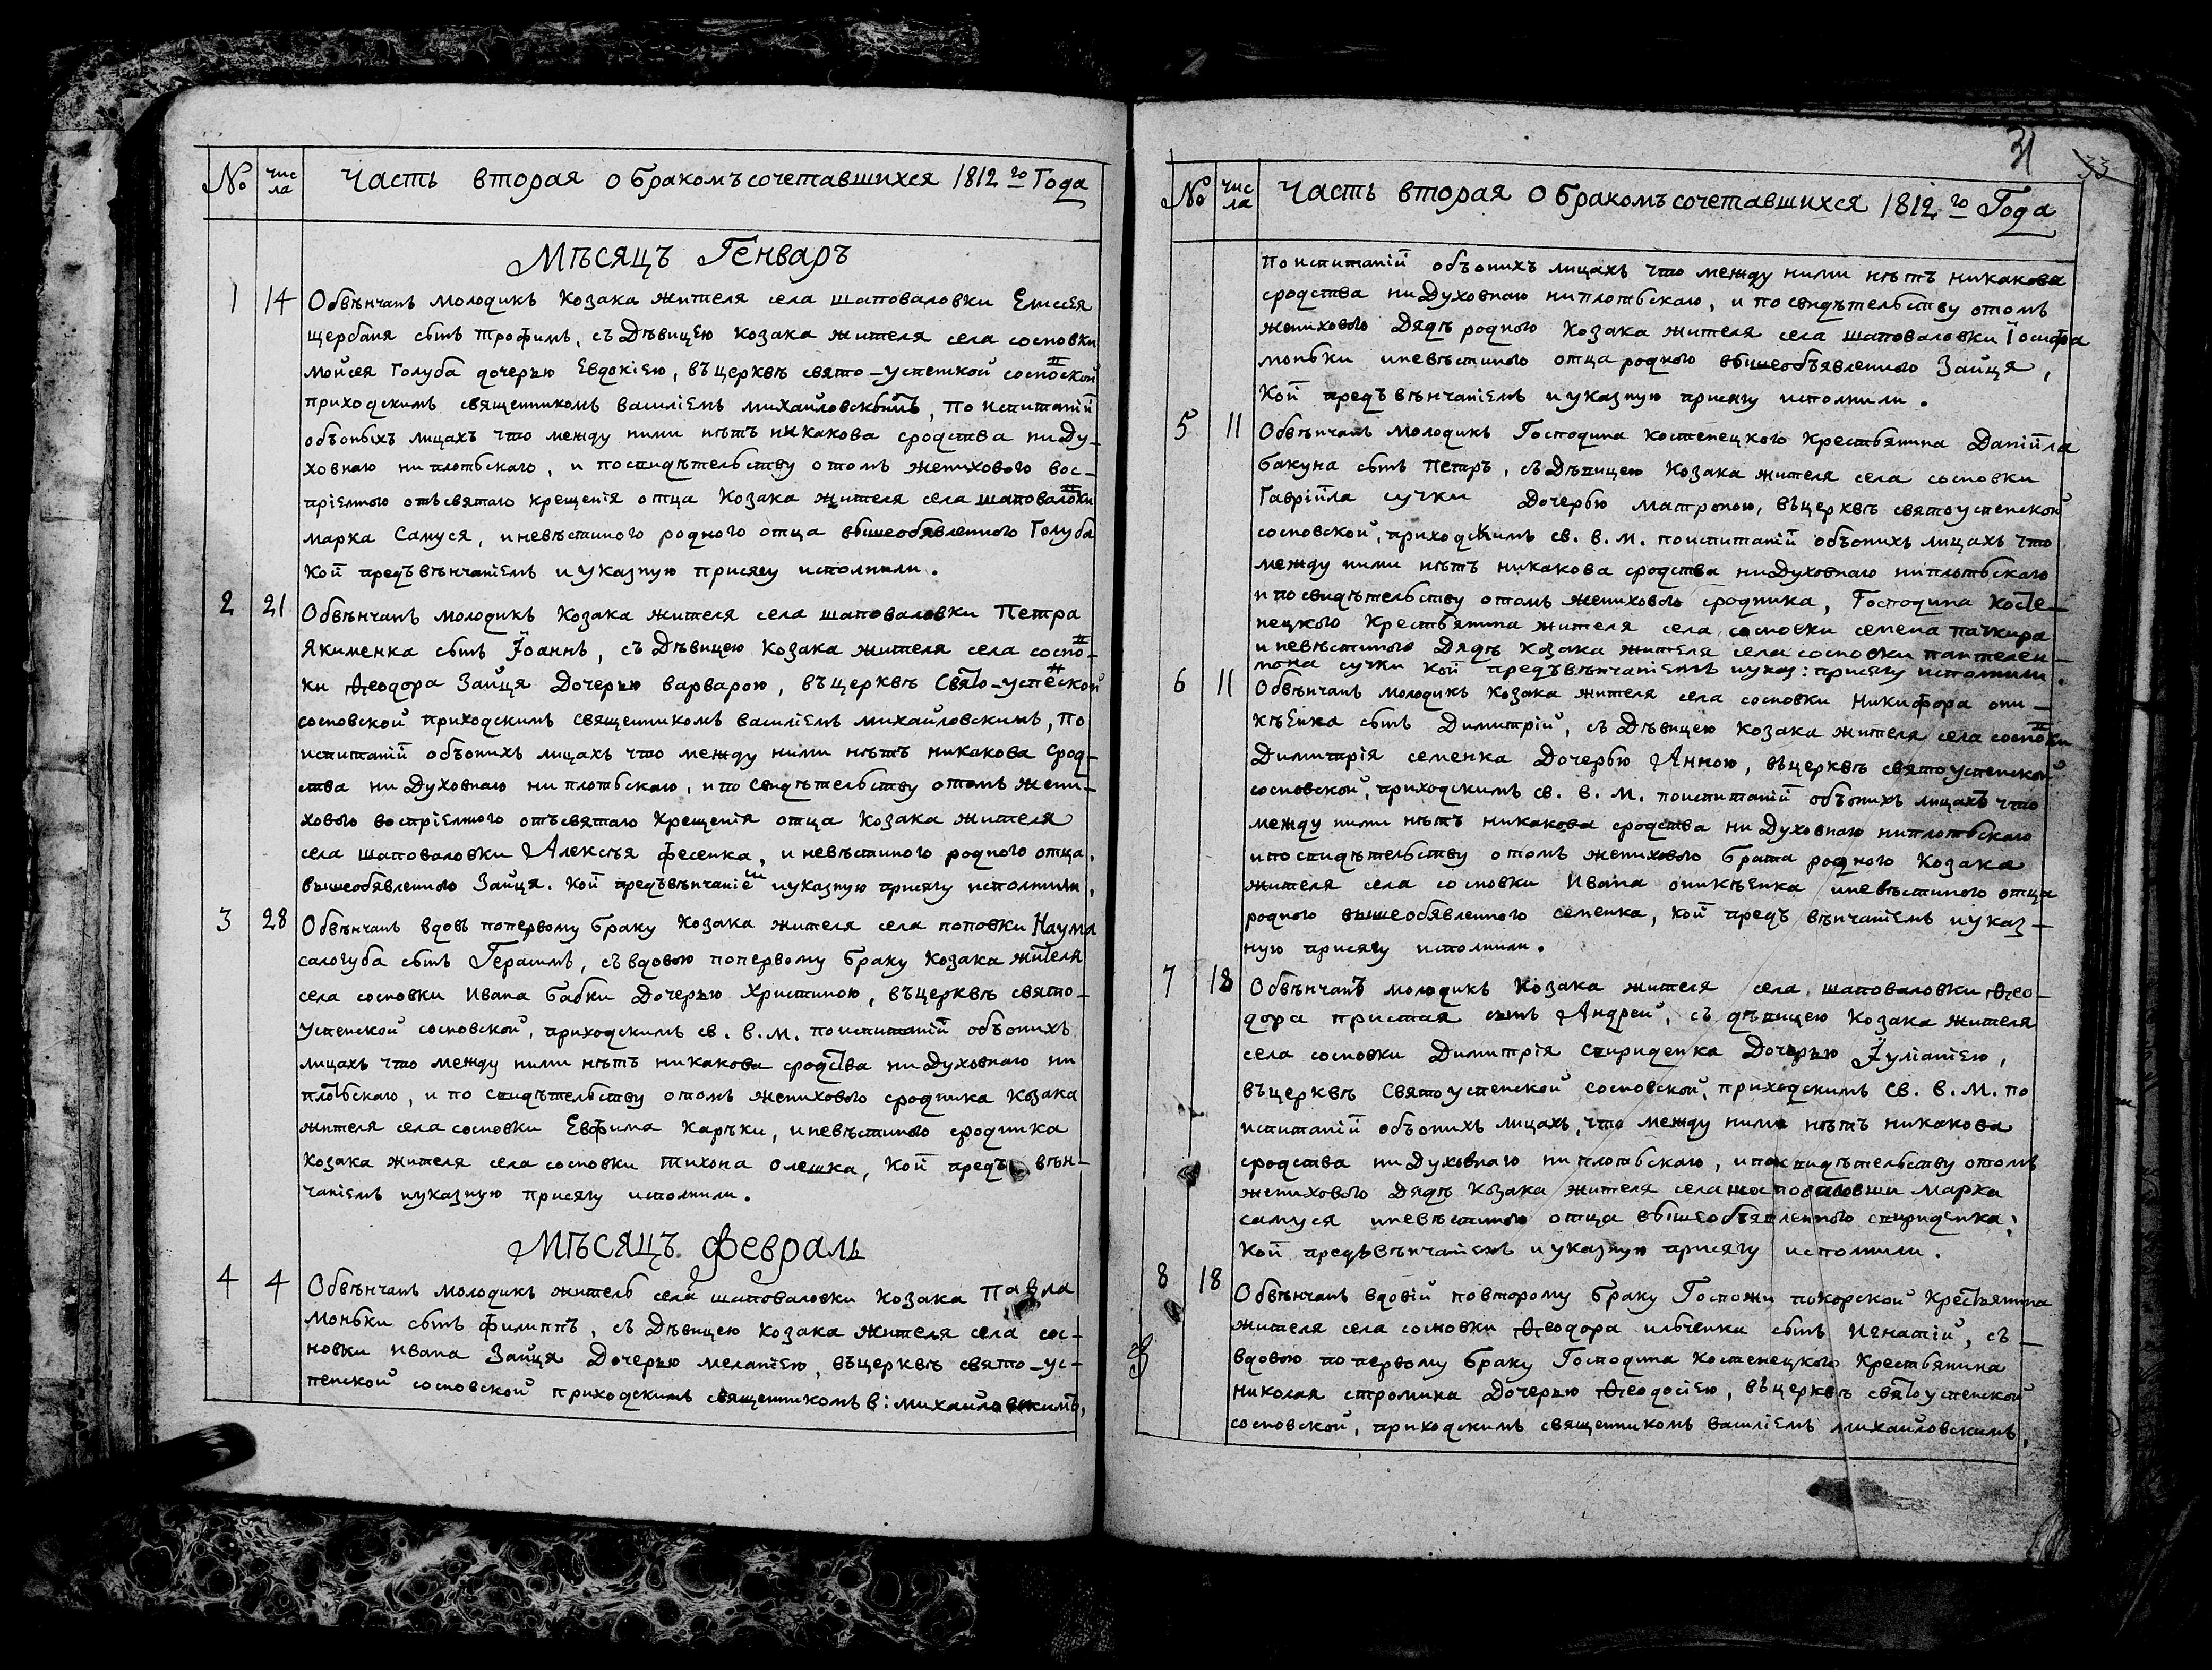 № чис
ла Часть вторая о бракомъ сочетавшихся 1812 го Года
Мѣсяцъ Генваръ
1 14 Обвѣнчанъ молодикъ козака жителя села шаповаловки Елисея
щербаня сынъ трофимъ, съ Дѣвицею козака жителя села сосновки
мойсея Голуба дочерью Евдокіею, въ церквѣ свято-успенской сосноской
приходскимъ священникомъ василіемъ михайловскымъ, по испитаній
объоныхъ лицахъ что между ними нѣтъ никакова сродства ни Ду-
ховнаго ни плотьскаго, и посвидѣтельству о томъ женихового вос-
пріемного отъ святаго крещенія отца козака жителя села шаповалоки
марка Самуся, и невѣстиного родного отца вышеобявленного Голуба
кой предъ вѣнчаніемъ и указную присягу исполнили.
2 21 Обвѣнчанъ молодикъ козака жителя села шаповаловки Петра
Якименка сынъ Іоаннъ, съ Дѣвицею козака жителя села сосно-
ки Ѳеодора Зайця Дочерью варварою, въ церквѣ Свято-успеской
сосновской приходскимъ священникомъ василіемъ михайловскимъ, по
испитаній объонихъ лицахъ что между ними нѣтъ никакова срод-
ства ни Духовнаго ни плотьскаго, и по свидѣтельству о томъ жени-
хового воспріемного отъ святаго крещенія отца козака жителя
села шаповаловки Алексѣя фесенка, и невѣстиного родного отца,
вышеобявленного Зайця. кой предъ вѣнчаніемъ и указную присягу исполнили,
3 28 Обвѣнчанъ вдовъ попервому браку козака жителя села поповки Наума
салогуба сынъ Герасимъ, съ вдовою попервому браку козака жителя
села сосновки Ивана бабки Дочерью Христиною, въ церквѣ свято-
Успенской сосновской, приходскимъ св. в. м. по испитаній объонихъ
лицахъ что между ними нѣтъ никакова сродства ни Духовнаго ни
плотьскаго, и по свидѣтельству о томъ женихового сродника козака
жителя села сосновки Евфима Каръки, и невѣстиного сродника
козака жителя села сосновки тихона олешка, кой предъ вѣн-
чаніемъ и указную присягу исполнили.
Мѣсяцъ февраль
4 4 Обвѣнчанъ молодикъ житель села шаповаловки козака Павла
моньки сынъ филиппъ, съ Дѣвицею козака жителя села сос-
новки Ивана Зайця Дочерью меланіею, въ церквѣ свято-ус-
пенской сосновской приходскимъ священникомъ в: михайловскимъ,
31
33
№ чис
ла Часть вторая о бракомъ сочетавшихся 1812 го Года
По испитаній объонихъ лицахъ что между ними нѣтъ никакова
сродства ни Духовнаго ни плотьскаго, и по свидѣтельству о томъ
женихового Дядѣ родного козака жителя села шаповаловки Іосифа
моньки и невѣстиного отца родного вышеобъявленного Зайця,
кой предъ вѣнчаніемъ и указную присягу исполнили.
5 11 Обвѣнчанъ молодикъ Господина костенецкого Крестьянина Даніила
бакуна сынъ Петръ, съ Дѣвицею козака жителя села сосновки
Гавріила сучки Дочерью матроною, въ церквѣ святоуспенской
сосновской, приходскимъ св. в. м. по испитаній объонихъ лицахъ что
между ними нѣтъ никакова сродства ни Духовнаго ни плотьскаго
и по свидѣтельству о томъ женихового сродника, Господина косте-
нецкого Крестьянина жителя села сосновки семена пачкира
и невѣстиного Дядѣ козака жителя села сосновки пантелеи-
мона сучки кой предъ вѣнчаніемъ и указ: присягу исполнили.
6 11 Обвѣнчанъ молодикъ козака жителя села сосновки Никифора они-
кѣенка сынъ Димитрій, съ Дѣвицею козака жителя села сосноки
Димитрія семенка Дочерью Анною, въ церквѣ святоуспенской
сосновской, приходскимъ св. в. м. по испитаній объонихъ лицахъ что
между ними нѣтъ никакова сродства ни Духовнаго ни плотьскаго
и по свидѣтельству о томъ женихового брата родного козака
жителя села сосновки Ивана оникѣенка и невѣстиного отца
родного вышеобявленного семенка, кой предъ вѣнчаніемъ и указ-
ную присягу исполнили.
7 18 Обвѣнчанъ молодикъ козака жителя села шаповаловки Ѳео-
дора пристая сынъ Андрей, съ дѣвицею козака жителя
села сосновки Димитрія спириденка Дочерью Іуліаніею,
въ церквѣ Святоуспенской сосновской, приходскимъ св. в. м. по
испитаній объонихъ лицахъ, что между ними нѣтъ никакова
сродства ни Духовнаго ни плотьскаго, и по свидѣтельству о томъ
женихового Дядѣ козака жителя села марка
самуся и невѣстиного отца вышеобъявленного спириденка,
кой предъ вѣнчаніемъ и указную присягу исполнили.
8 18 Обвѣнчанъ вдовій повторому браку Госпожи покорской Крестьянина
жителя села сосновки Ѳеодора ильченка сынъ Игнатій, съ
вдовою по первому браку Господина костенецкого Крестьянина
николая стромина Дочерью Ѳеодосіею, въ церквѣ святоуспенской
сосновской, приходскимъ священникомъ василіемъ михайловскимъ,